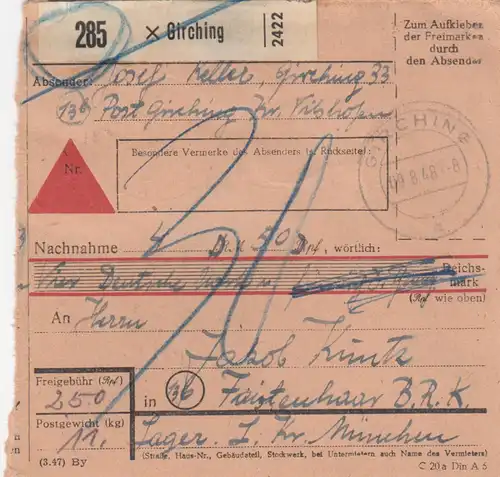 285 × Girching 2422
Zum Aufkleben
der Freimarken
durch
den Absender
Absender: Josef Keller Girching 33
13b Post Girching Kr. Vilshofen
GIRCHING
10 8.48.-8
a
Nr.
Besondere Vermerke des Absenders (s. Rückseite):
Nachnahme 4 D RM 50 D Pf, wörtlich:
Vier Deutsche Mark u. Reichs-
mark
(Rpf wie oben)
An Herrn
Jakob Kuntz
Freigebühr (Rpf)
250
in 13b Faistenhaar B.R.K.
Postgewicht (kg)
12. Lager. L. Kr. München
(Straße, Haus-Nr., Gebäudeteil, Stockwerk, bei Untermietern auch Name des Vermieters)
(3.47) By
C 20 a Din A 5